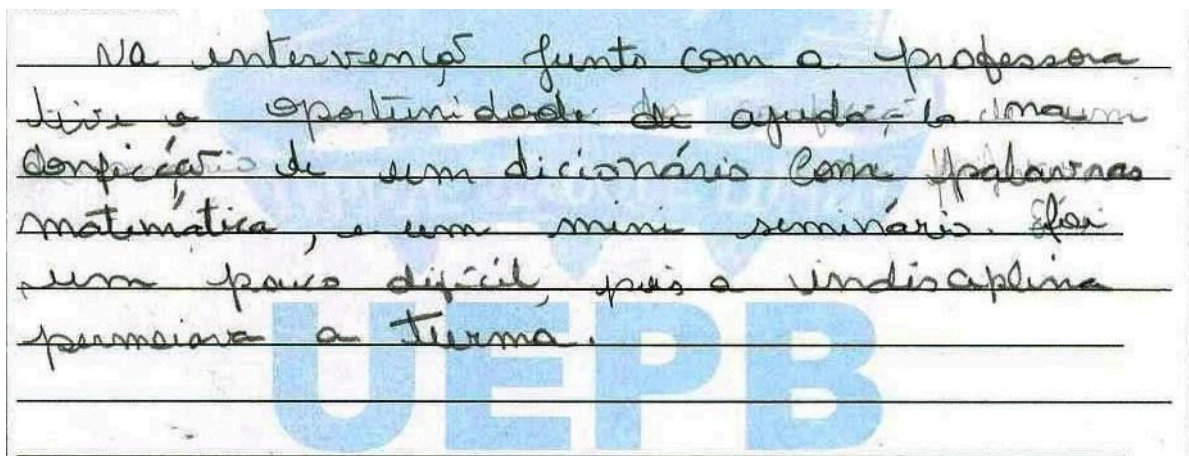 Na intervençõ junto com a professora
tive a oportunidade de ajudá-la na
confecção de um dicionário com palavras
matemática, e um mini seminário. foi
um pouco difícil, pois a indisciplina
permeiava a turma.
UEPB